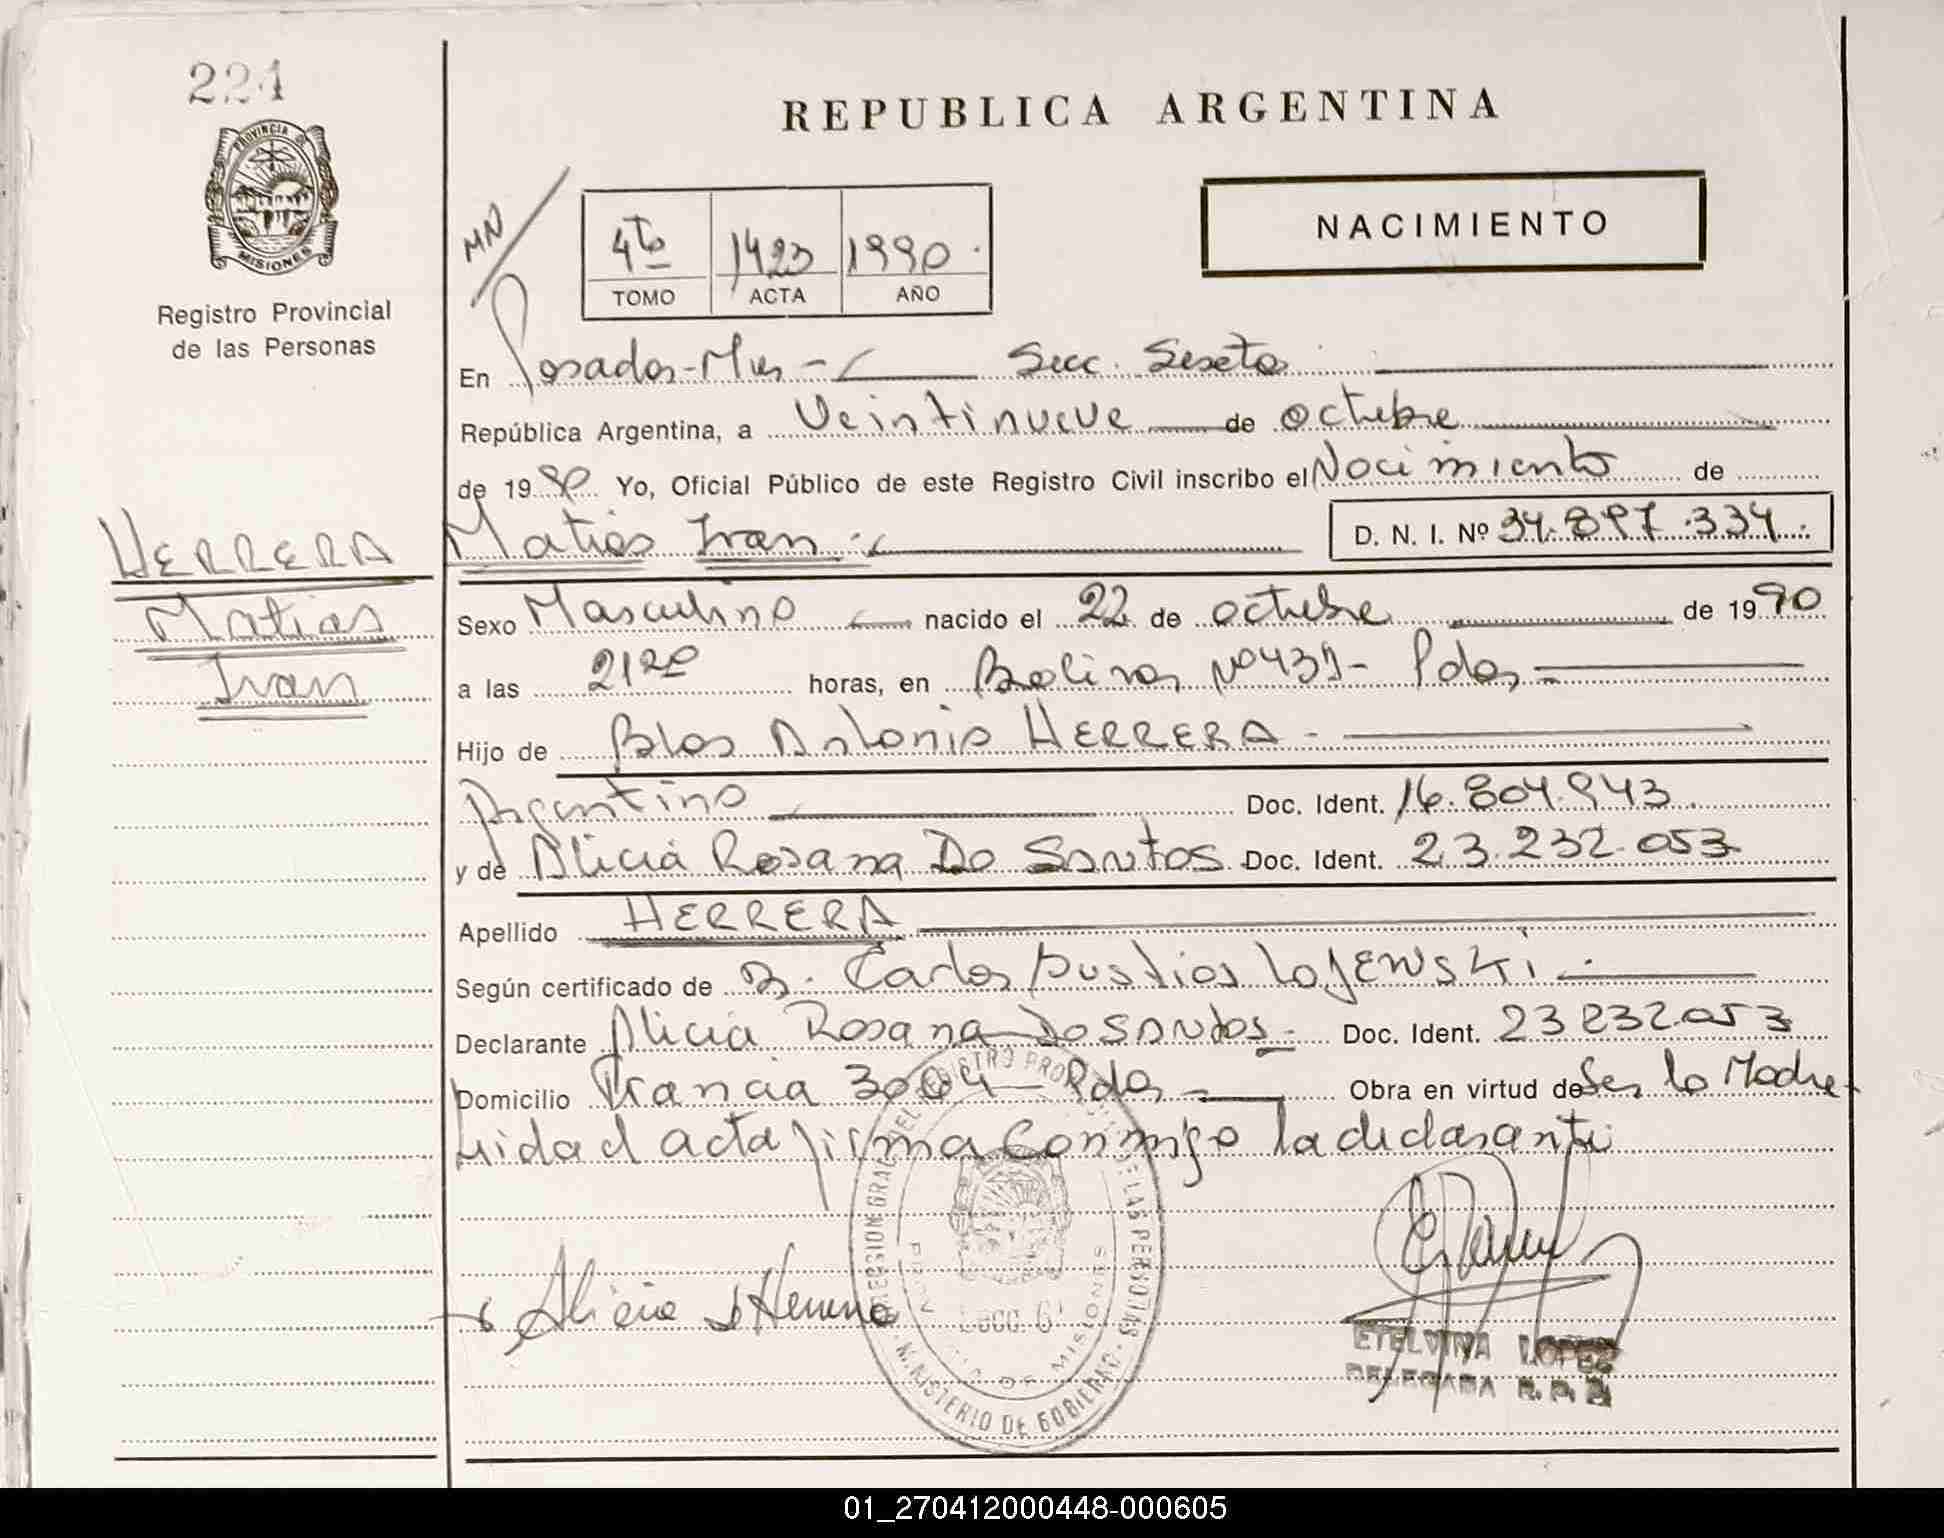 224
PROVINCIA DE
MISIONES
Registro Provincial
de las Personas
HERRERA
Matias
Ivan
REPUBLICA ARGENTINA
NACIMIENTO
MN
4to 1423 1990.
TOMO ACTA AÑO
En Posadas-Mnes - Secc. Sexta
República Argentina, a Veintinueve de octubre
de 1990 Yo, Oficial Público de este Registro Civil inscribo el Nacimiento de
Matias Ivan D. N. I. Nº 34.897.334
Sexo Masculino nacido el 22 de octubre de 1990
a las 2120 horas, en Bolivar Nº 439- Pdas
Hijo de Blas Antonio HERRERA -
Argentino Doc. Ident. 16.804.943
y de Alicia Rosana Do Santos Doc. Ident. 23.232.053
Apellido HERRERA
Según certificado de Carlos Bustios LoJEWSKi
Declarante Alicia Rosana Do Santos - Doc. Ident. 23232.053
Domicilio Francia 3004 - Pdas - Obra en virtud de Ser la Madre
Leida el acta firma Conmigo la declarante
Alicia D Herrera
DIRECCION GRAL DEL REGISTRO PROVINCIAL DE LAS PERSONAS
MINISTERIO DE GOBIERNO
PROVINCIA DE MISIONES
SECC. 6
ETELVINA LOPEZ
DELEGADA R. P. P.
01_270412000448-000605